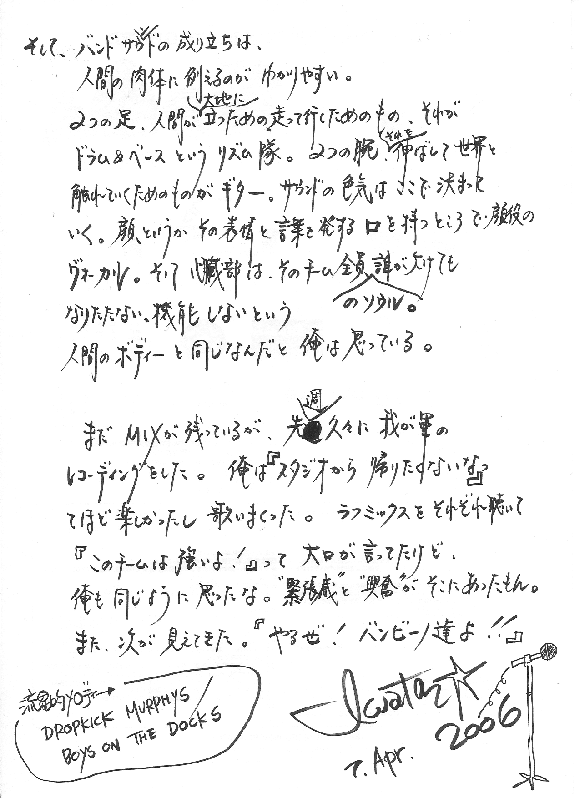 そして、バンドサウンドの成り立ちは、
人間の肉体に例えるのがわかりやすい。
大地に
2つの足、人間が立つための、走って行くためのもの、それが
ドラム&ベースというリズム隊。2つの腕、それを伸ばして世界と
触れていくためのものがギター。サウンドの色気はここで決まって
いく。顔、というかその表情と言葉を発する口を持つところで顔役の
ヴォーカル。そして心臓部は、そのチーム全員誰が欠けても
のソウル。
なりたたない、機能しないという
人間のボディーと同じなんだと俺は思っている。
週
まだMIXが残っているが、先 久々に我が軍の
レコーディングをした。俺は『スタジオから帰りたくないな』っ
てほど楽しかったし歌いまくった。ラフミックスをそれぞれ聴いて
『このチームは強いよ!』って大口が言ってたけど、
俺も同じように思ったな。"緊張感"と"興奮"がそこにあったもん。
また、次が見えてきた。『やるぜ!バンビーノ達よ!!』
流用的メロディー→
DROPKICK MURPHYS/
BOYS ON THE DOCKS
7. Apr. 2006